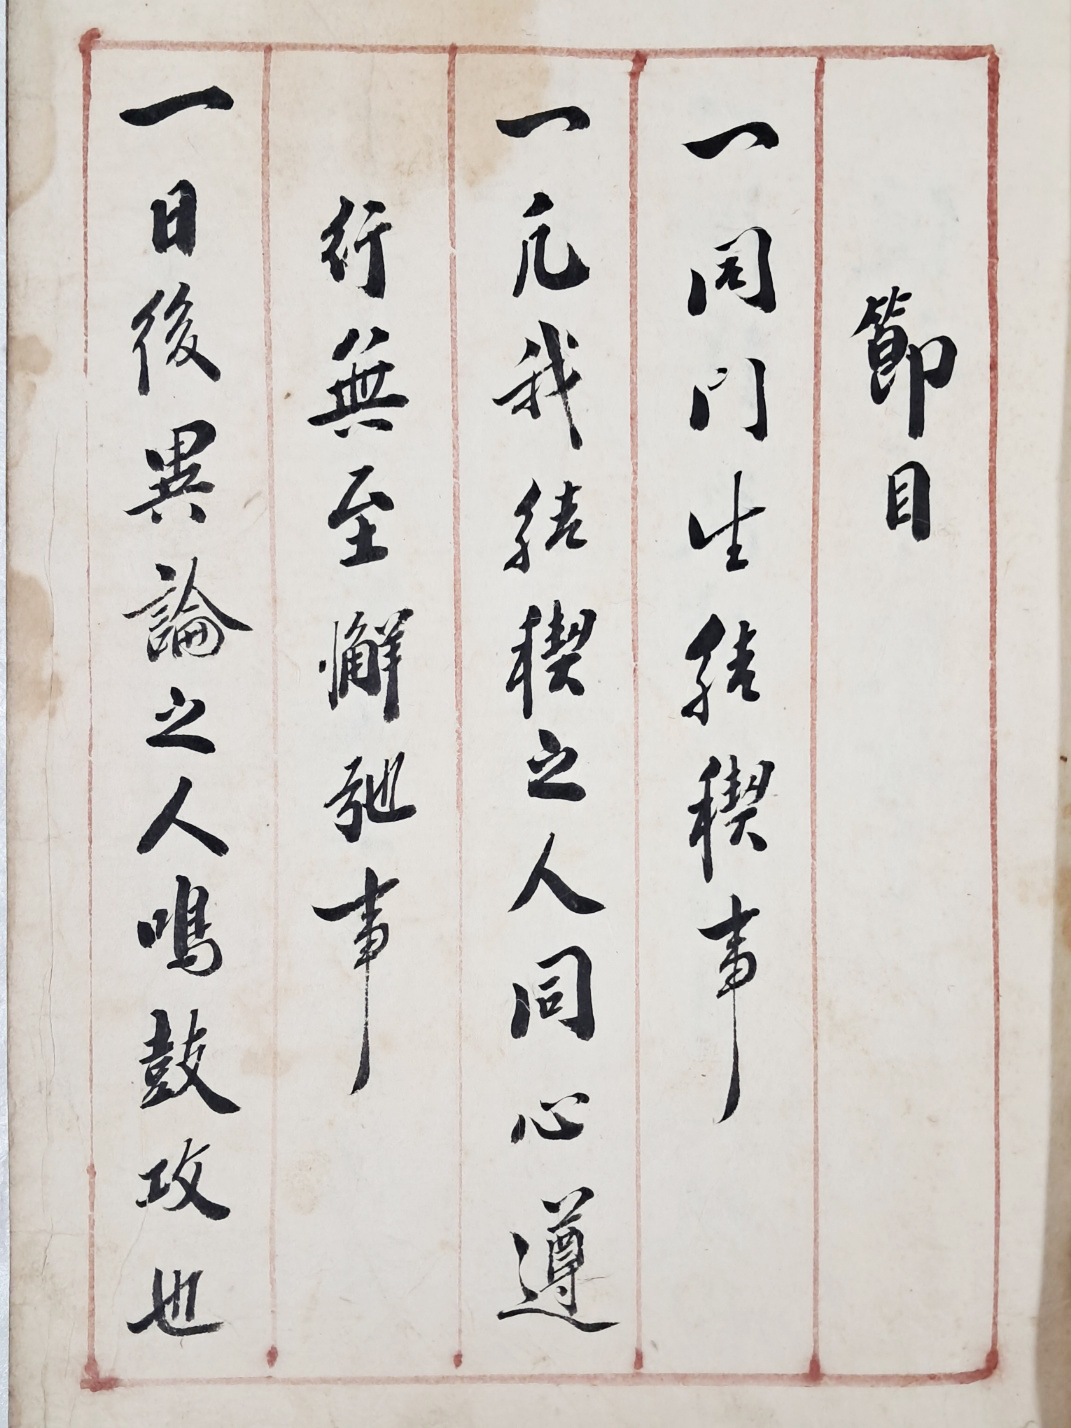 節目
一同門生結稧事
一凡我結稧之人同心遵
行無至懈弛事
一日後異論之人鳴鼓攻也